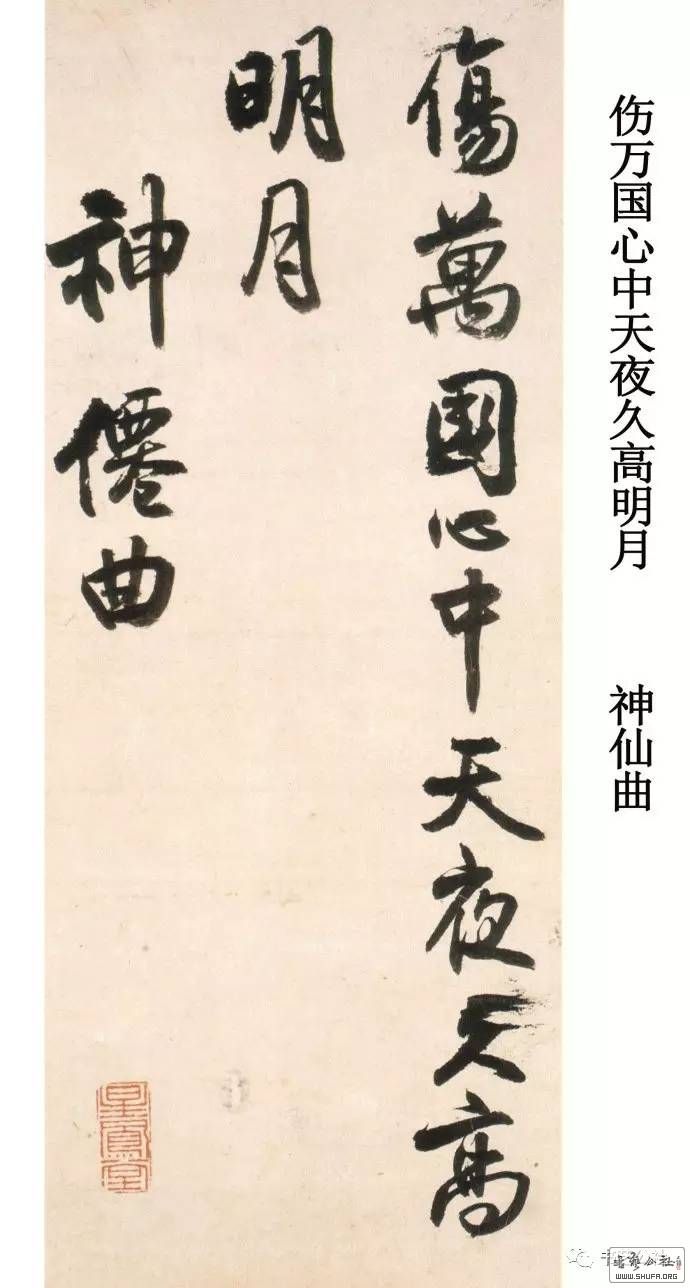 伤万国心中天夜久高明月 神仙曲
傷萬國心中天夜久高
明月
神僊曲
WWW.SHUFA.ORG